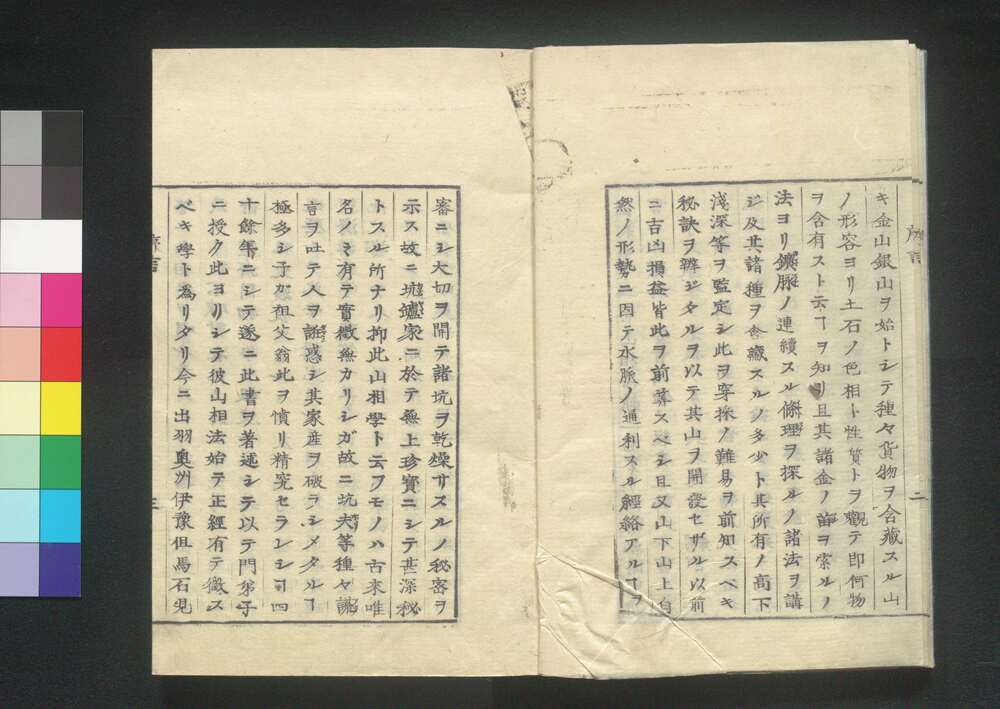 序言
二
キ金山銀山ヲ始トシテ種々貨物ヲ含藏スル山
ノ形容ヨリ土石ノ色相ト性質トヲ觀テ即何物
ヲ含有スト云ヿヲ知リ且其諸金ノ ヲ索ルノ
法ヨリ鑛脈ノ連續スル條理ヲ探ルノ諸法ヲ講
ジ及其諸種ヲ含藏スルノ多少ト其所有ノ高下
淺深等ヲ監定シ此ヲ穿採ノ難易ヲ前知スベキ
秘訣ヲ辨ジタルヲ以テ其山ヲ開發セザル以前
ニ吉凶損益皆此ヲ前筭スベシ且又山下山上自
然ノ形勢ニ因テ水脈ノ通利スル經絡アルヿヲ
審ニシ大切ヲ開テ諸坑ヲ乾燥サスルノ秘密ヲ
示ス故ニ坑鑪家ニ於テ無上珍寶ニシテ甚深秘
トスル所ナリ抑此山相學ト云フモノハ古來唯
名ノミ有テ實徴無カリシガ故ニ坑夫等種々
言ヲ吐テ人ヲ誑惑シ其家産ヲ破ラシメタルヿ
極多シ予ガ祖父翁此ヲ憤リ精究セラレシヿ四
十餘年ニシテ遂ニ此書ヲ著述シテ以テ門弟子
ニ授ク此ヨリシテ彼山相法始テ正經有テ徴ス
ベキ學ト爲リタリ今ニ出羽奥州伊豫但馬石見
序言
三